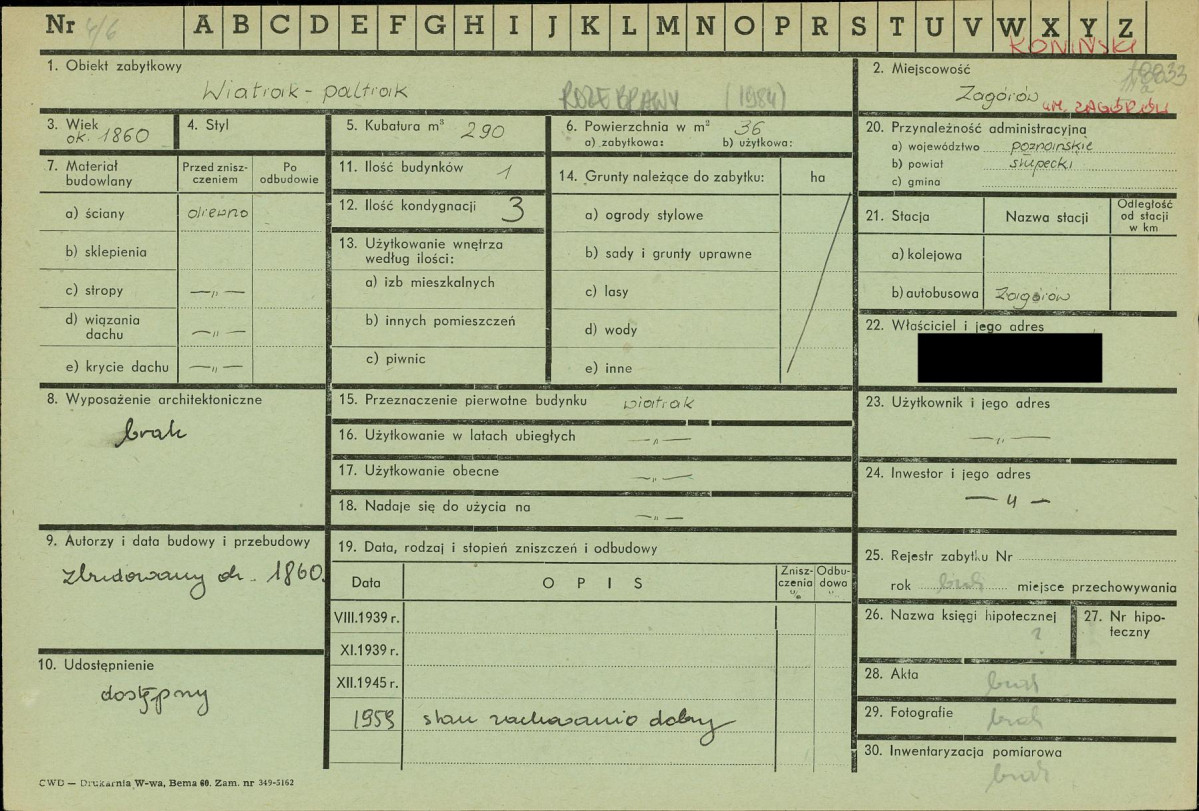 Nr 4/6 A B C D E F G H I J K L M N O P R S T U V W X Y Z
KONIŃSKI
1. Obiekt zabytkowy
Wiatrak - paltrak
ROZEBRANY (1984)
2. Miejscowość
Zagórów
UM. ZAGÓRÓW
3. Wiek
ok. 1860
4. Styl
5. Kubatura m³ 290
6. Powierzchnia w m² 36
a) zabytkowa: b) użytkowa:
20. Przynależność administracyjna
a) województwo poznańskie
b) powiat słupecki
c) gmina
7. Materiał budowlany
Przed znisz-
czeniem
Po
odbudowie
a) ściany drewno
b) sklepienia
c) stropy —„—
d) wiązania
dachu —„—
e) krycie dachu —„—
11. Ilość budynków 1
12. Ilość kondygnacji 3
13. Użytkowanie wnętrza
według ilości:
a) izb mieszkalnych
b) innych pomieszczeń
c) piwnic
14. Grunty należące do zabytku: ha
a) ogrody stylowe
b) sady i grunty uprawne
c) lasy
d) wody
e) inne
21. Stacja Nazwa stacji
Odległość
od stacji
w km
a) kolejowa
b) autobusowa Zagórów
22. Właściciel i jego adres
8. Wyposażenie architektoniczne
brak
15. Przeznaczenie pierwotne budynku wiatrak
16. Użytkowanie w latach ubiegłych —„—
17. Użytkowanie obecne —„—
18. Nadaje się do użycia na —„—
23. Użytkownik i jego adres
—„—
24. Inwestor i jego adres
—„—
9. Autorzy i data budowy i przebudowy
zbudowany ok. 1860.
19. Data, rodzaj i stopień zniszczeń i odbudowy
Data OPIS
Znisz-
czenia
%
Odbu-
dowa
%
VIII.1939 r.
XI.1939 r.
XII.1945 r.
1959 stan zachowania dobry
25. Rejestr zabytku Nr
rok brak miejsce przechowywania
26. Nazwa księgi hipotecznej
?
27. Nr hipo-
teczny
10. Udostępnienie
dostępny
28. Akta
brak
29. Fotografie
brak
30. Inwentaryzacja pomiarowa
brak
CWD — Drukarnia W-wa, Bema 60. Zam. nr 349-5162